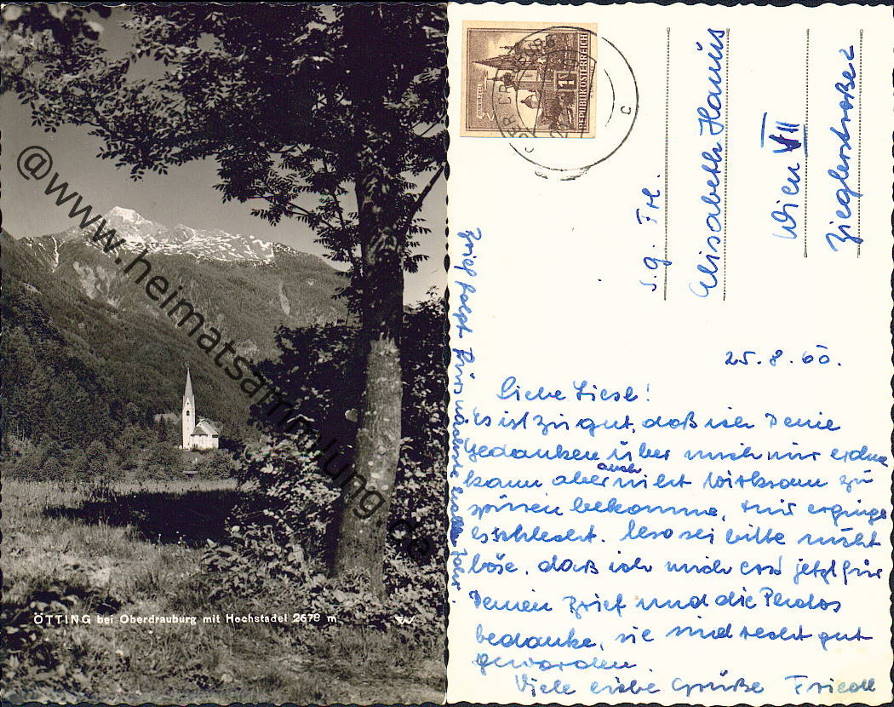 @www.heimatsammlung.de
ÖTTING bei Oberdrauburg mit Hochstadel 2678 m
REPUBLIK ÖSTERREICH
S.g. Frl.
Elisabeth Hanus
Wien VII
Zieglerstraße 2
25. 8. 60.
Liebe Liesl!
Es ist zu gut, daß ich Deine
Gedanken über mich nur
kann aber auch nicht wirksam zu
spüren bekomme, mir erginge
es schlecht. Also sei bitte nicht
böse, daß ich mich erst jetzt für
Deinen Brief und die Photos
bedanke, sie sind recht gut
geworden.
Viele liebe Grüße Friedl
Brief folgt fürs nächste halbe Jahr.